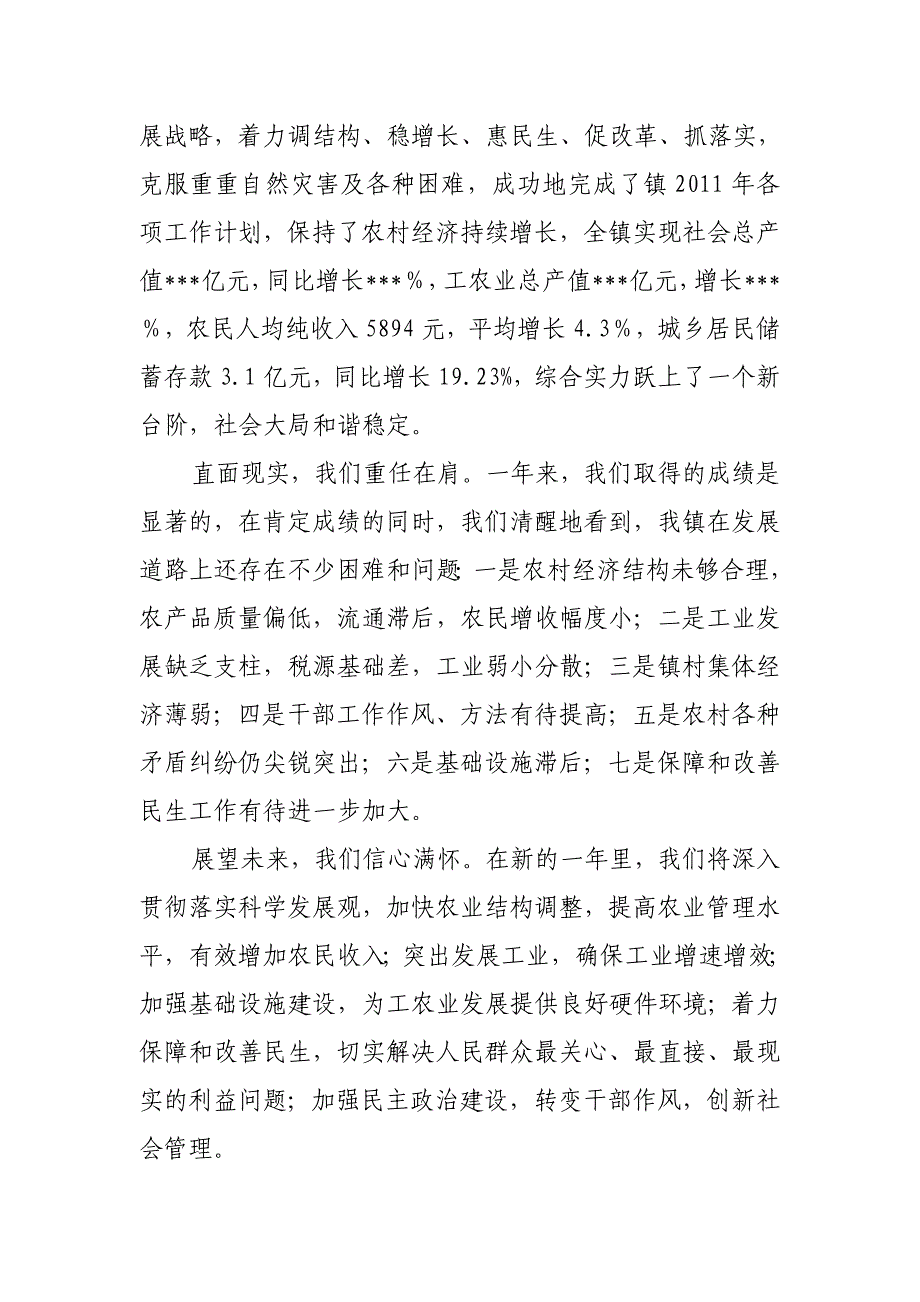 展战略，着力调结构、稳增长、惠民生、促改革、抓落实，
克服重重自然灾害及各种困难，成功地完成了镇 2011 年各
项工作计划，保持了农村经济持续增长，全镇实现社会总产
值***亿元，同比增长***％，工农业总产值***亿元，增长***
％，农民人均纯收入 5894 元，平均增长 4.3％，城乡居民储
蓄存款 3.1 亿元，同比增长 19.23%，综合实力跃上了一个新
台阶，社会大局和谐稳定。
直面现实，我们重任在肩。一年来，我们取得的成绩是
显著的，在肯定成绩的同时，我们清醒地看到，我镇在发展
道路上还存在不少困难和问题：一是农村经济结构未够合理，
农产品质量偏低，流通滞后，农民增收幅度小；二是工业发
展缺乏支柱，税源基础差，工业弱小分散；三是镇村集体经
济薄弱；四是干部工作作风、方法有待提高；五是农村各种
矛盾纠纷仍尖锐突出；六是基础设施滞后；七是保障和改善
民生工作有待进一步加大。
展望未来，我们信心满怀。在新的一年里，我们将深入
贯彻落实科学发展观，加快农业结构调整，提高农业管理水
平，有效增加农民收入；突出发展工业，确保工业增速增效；
加强基础设施建设，为工农业发展提供良好硬件环境；着力
保障和改善民生，切实解决人民群众最关心、最直接、最现
实的利益问题；加强民主政治建设，转变干部作风，创新社
会管理。